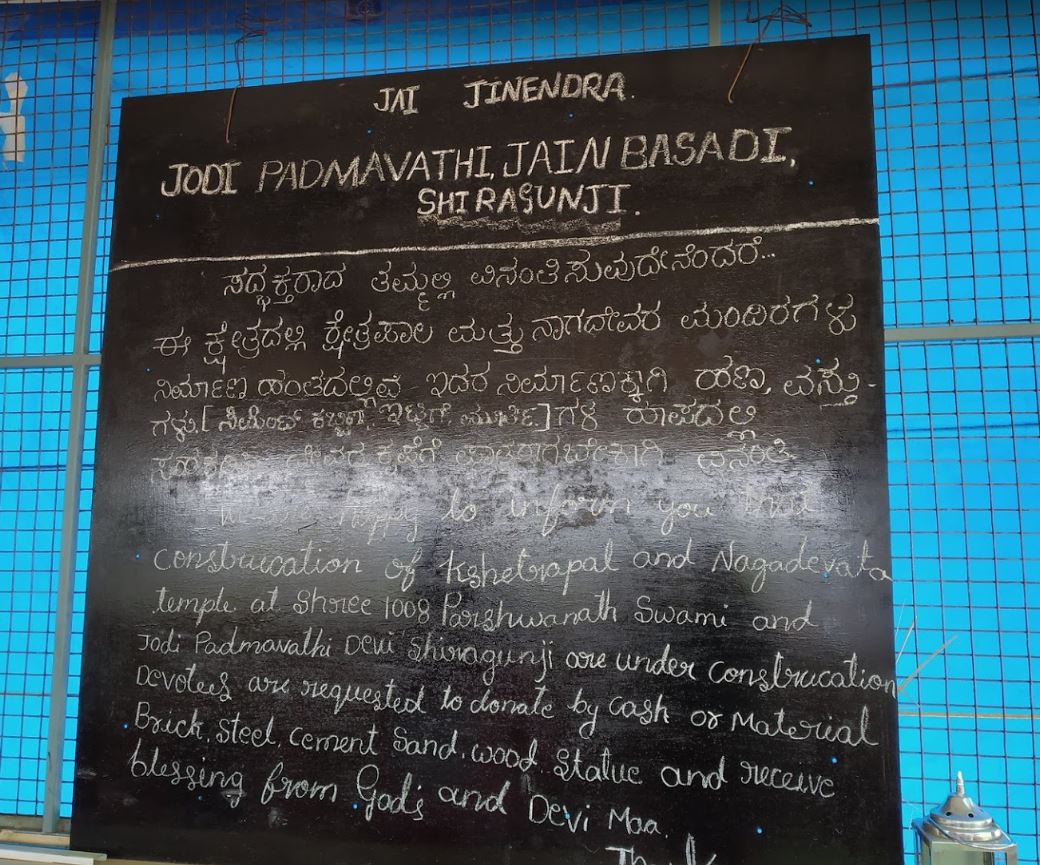 JAI JINENDRA.
JODI PADMAVATHI, JAIN BASADI,
SHIRAGUNJI.
ಸದ್ಭಕ್ತರಾದ ತಮ್ಮಲ್ಲಿ ವಿನಂತಿಸುವುದೇನೆಂದರೆ...
ಈ ಕ್ಷೇತ್ರದಲ್ಲಿ ಕ್ಷೇತ್ರಪಾಲ ಮತ್ತು ನಾಗದೇವರ ಮಂದಿರಗಳು
ನಿರ್ಮಾಣ ಹಂತದಲ್ಲಿವೆ ಇದರ ನಿರ್ಮಾಣಕ್ಕಾಗಿ ಹಣ, ವಸ್ತು-
ಗಳು, [ಸಿಮೆಂಟ್ ಕಬ್ಬಿಣ, ಇಟ್ಟಿಗೆ, ಮೂರ್ತಿ] ಗಳ ರೂಪದಲ್ಲಿ
ಕೃಪೆಗೆ ಪಾತ್ರರಾಗಬೇಕಾಗಿ ವಿನಂತಿ
happy to inform you that
construcation of Kshetrapal and Nagadevata
temple at Shree 1008 Parshwanath Swami and
Jodi Padmavathi Devi Shiragunji are under construcation
Devotees are requested to donate by cash or Material
Brick, Steel, Cement Sand, wood, Statue and receive
blessing from Gods and Devi Maa.